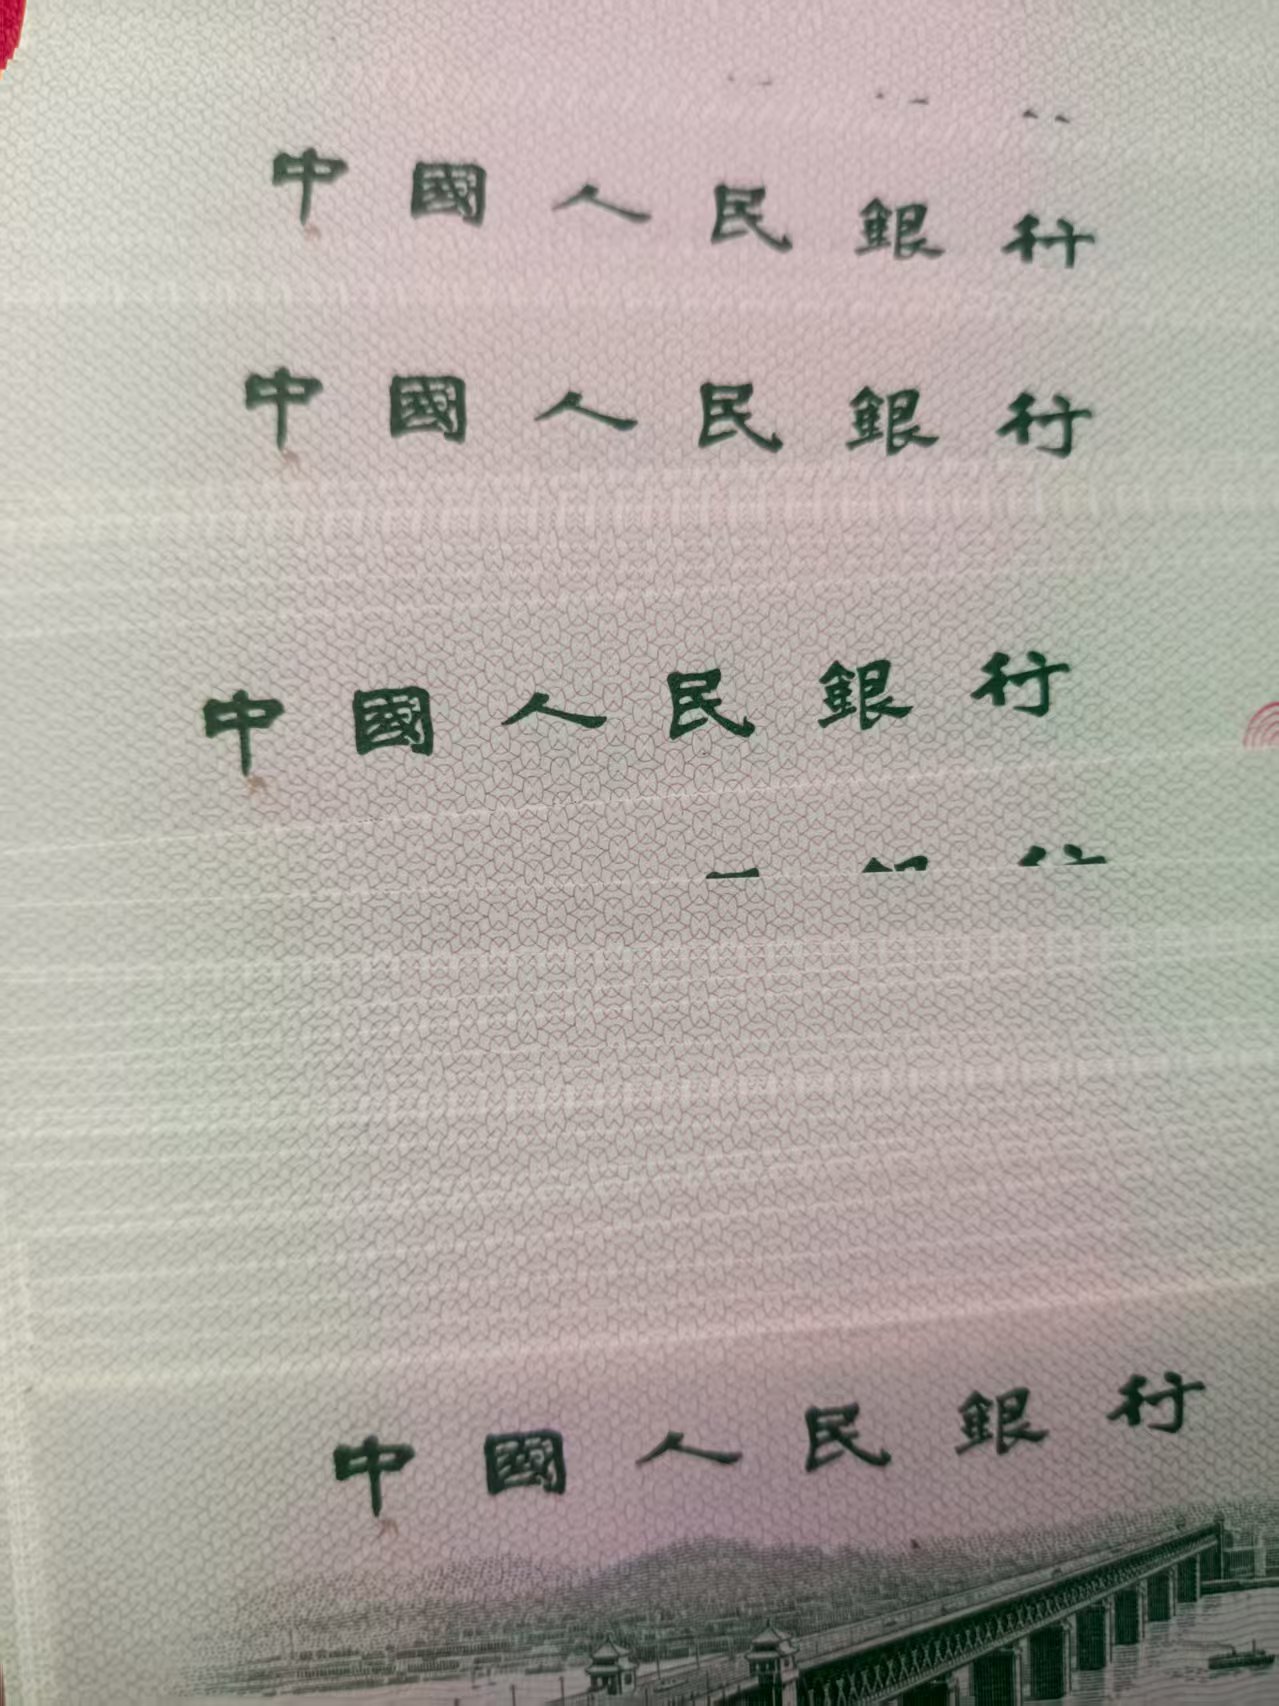 中國人民銀行
中國人民銀行
中國人民銀行
銀行
中國人民銀行